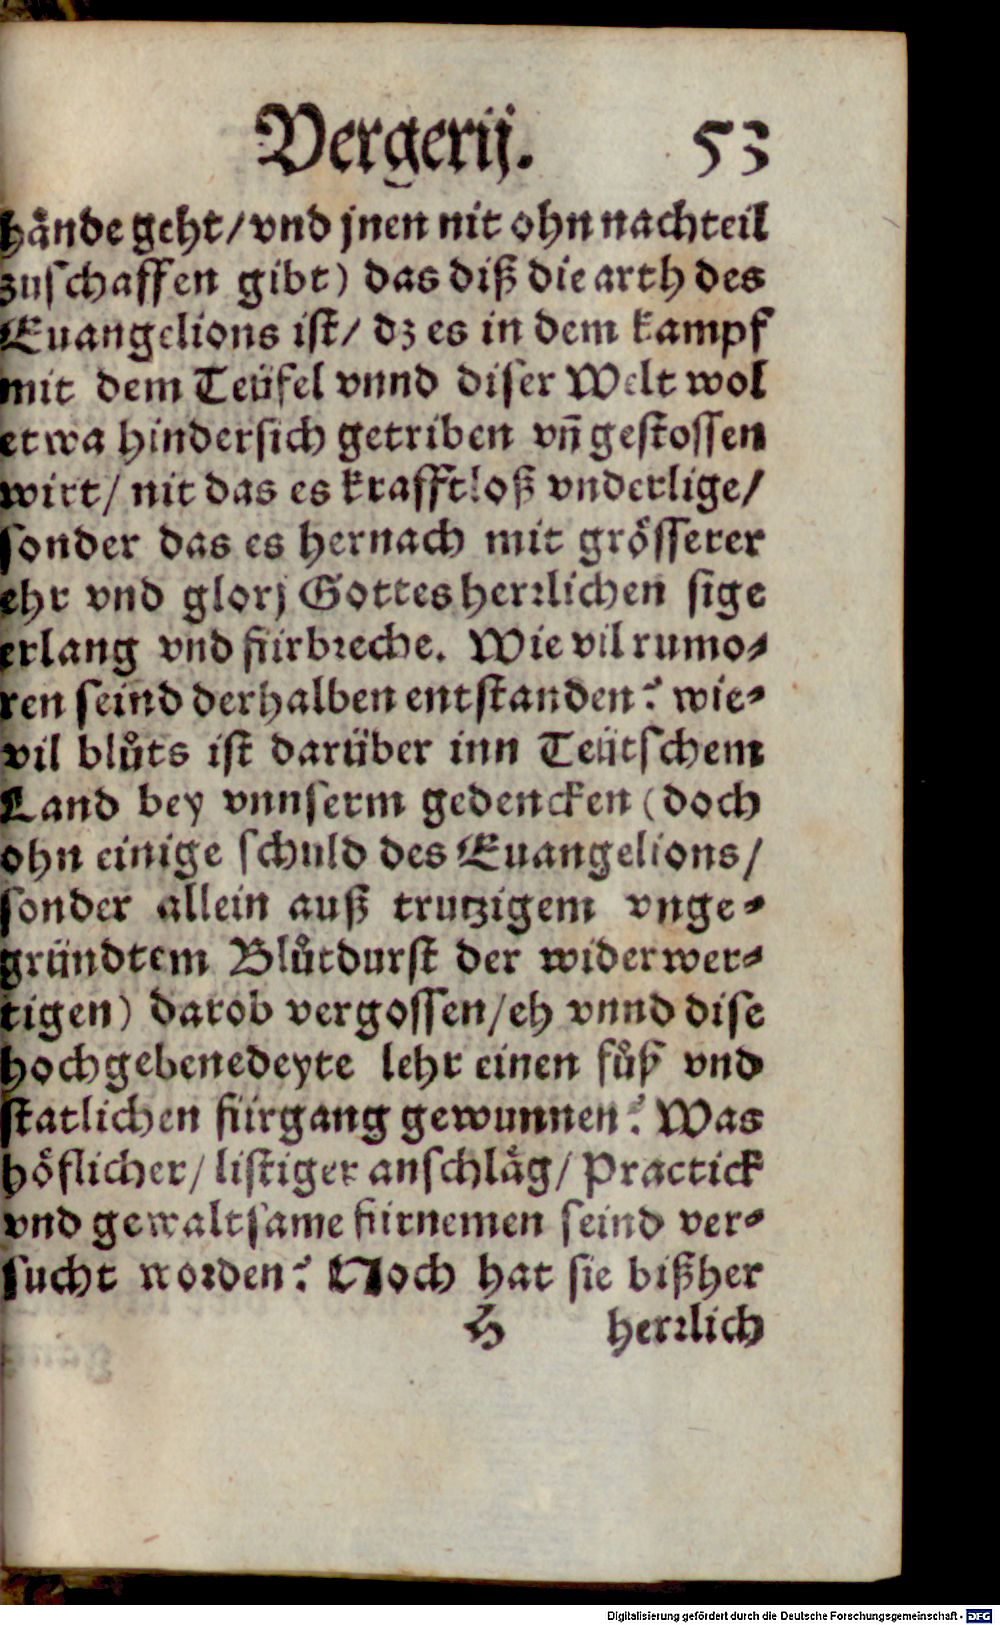 Vergerij. 53
hånde geht / vnd jnen nit ohn nachteil
zuschaffen gibt) das diß die arth des
Euangelions ist / dz es in dem kampf
mit dem Teüfel vnnd diser Welt wol
etwa hindersich getriben vñ gestossen
wirt / nit das es krafftloß vnderlige /
sonder das es hernach mit grösserer
ehr vnd glorj Gottes herꝛlichen sige
erlang vnd fürbreche. Wie vil rumo-
ren seind derhalben entstanden? wie-
vil blůts ist darüber inn Teütschem
Land bey vnnserm gedencken (doch
ohn einige schuld des Euangelions /
sonder allein auß trutzigem vnge-
gründtem Blůtdurst der widerwer-
tigen) darob vergossen / eh vnnd dise
hochgebenedeyte lehr einen fůß vnd
statlichen fürgang gewunnen? Was
höflicher / listiger anschläg / Practick
vnd gewaltsame fürnemen seind ver-
sucht worden? Noch hat sie bißher
H herꝛlich
Digitalisierung gefördert durch die Deutsche Forschungsgemeinschaft - DFG